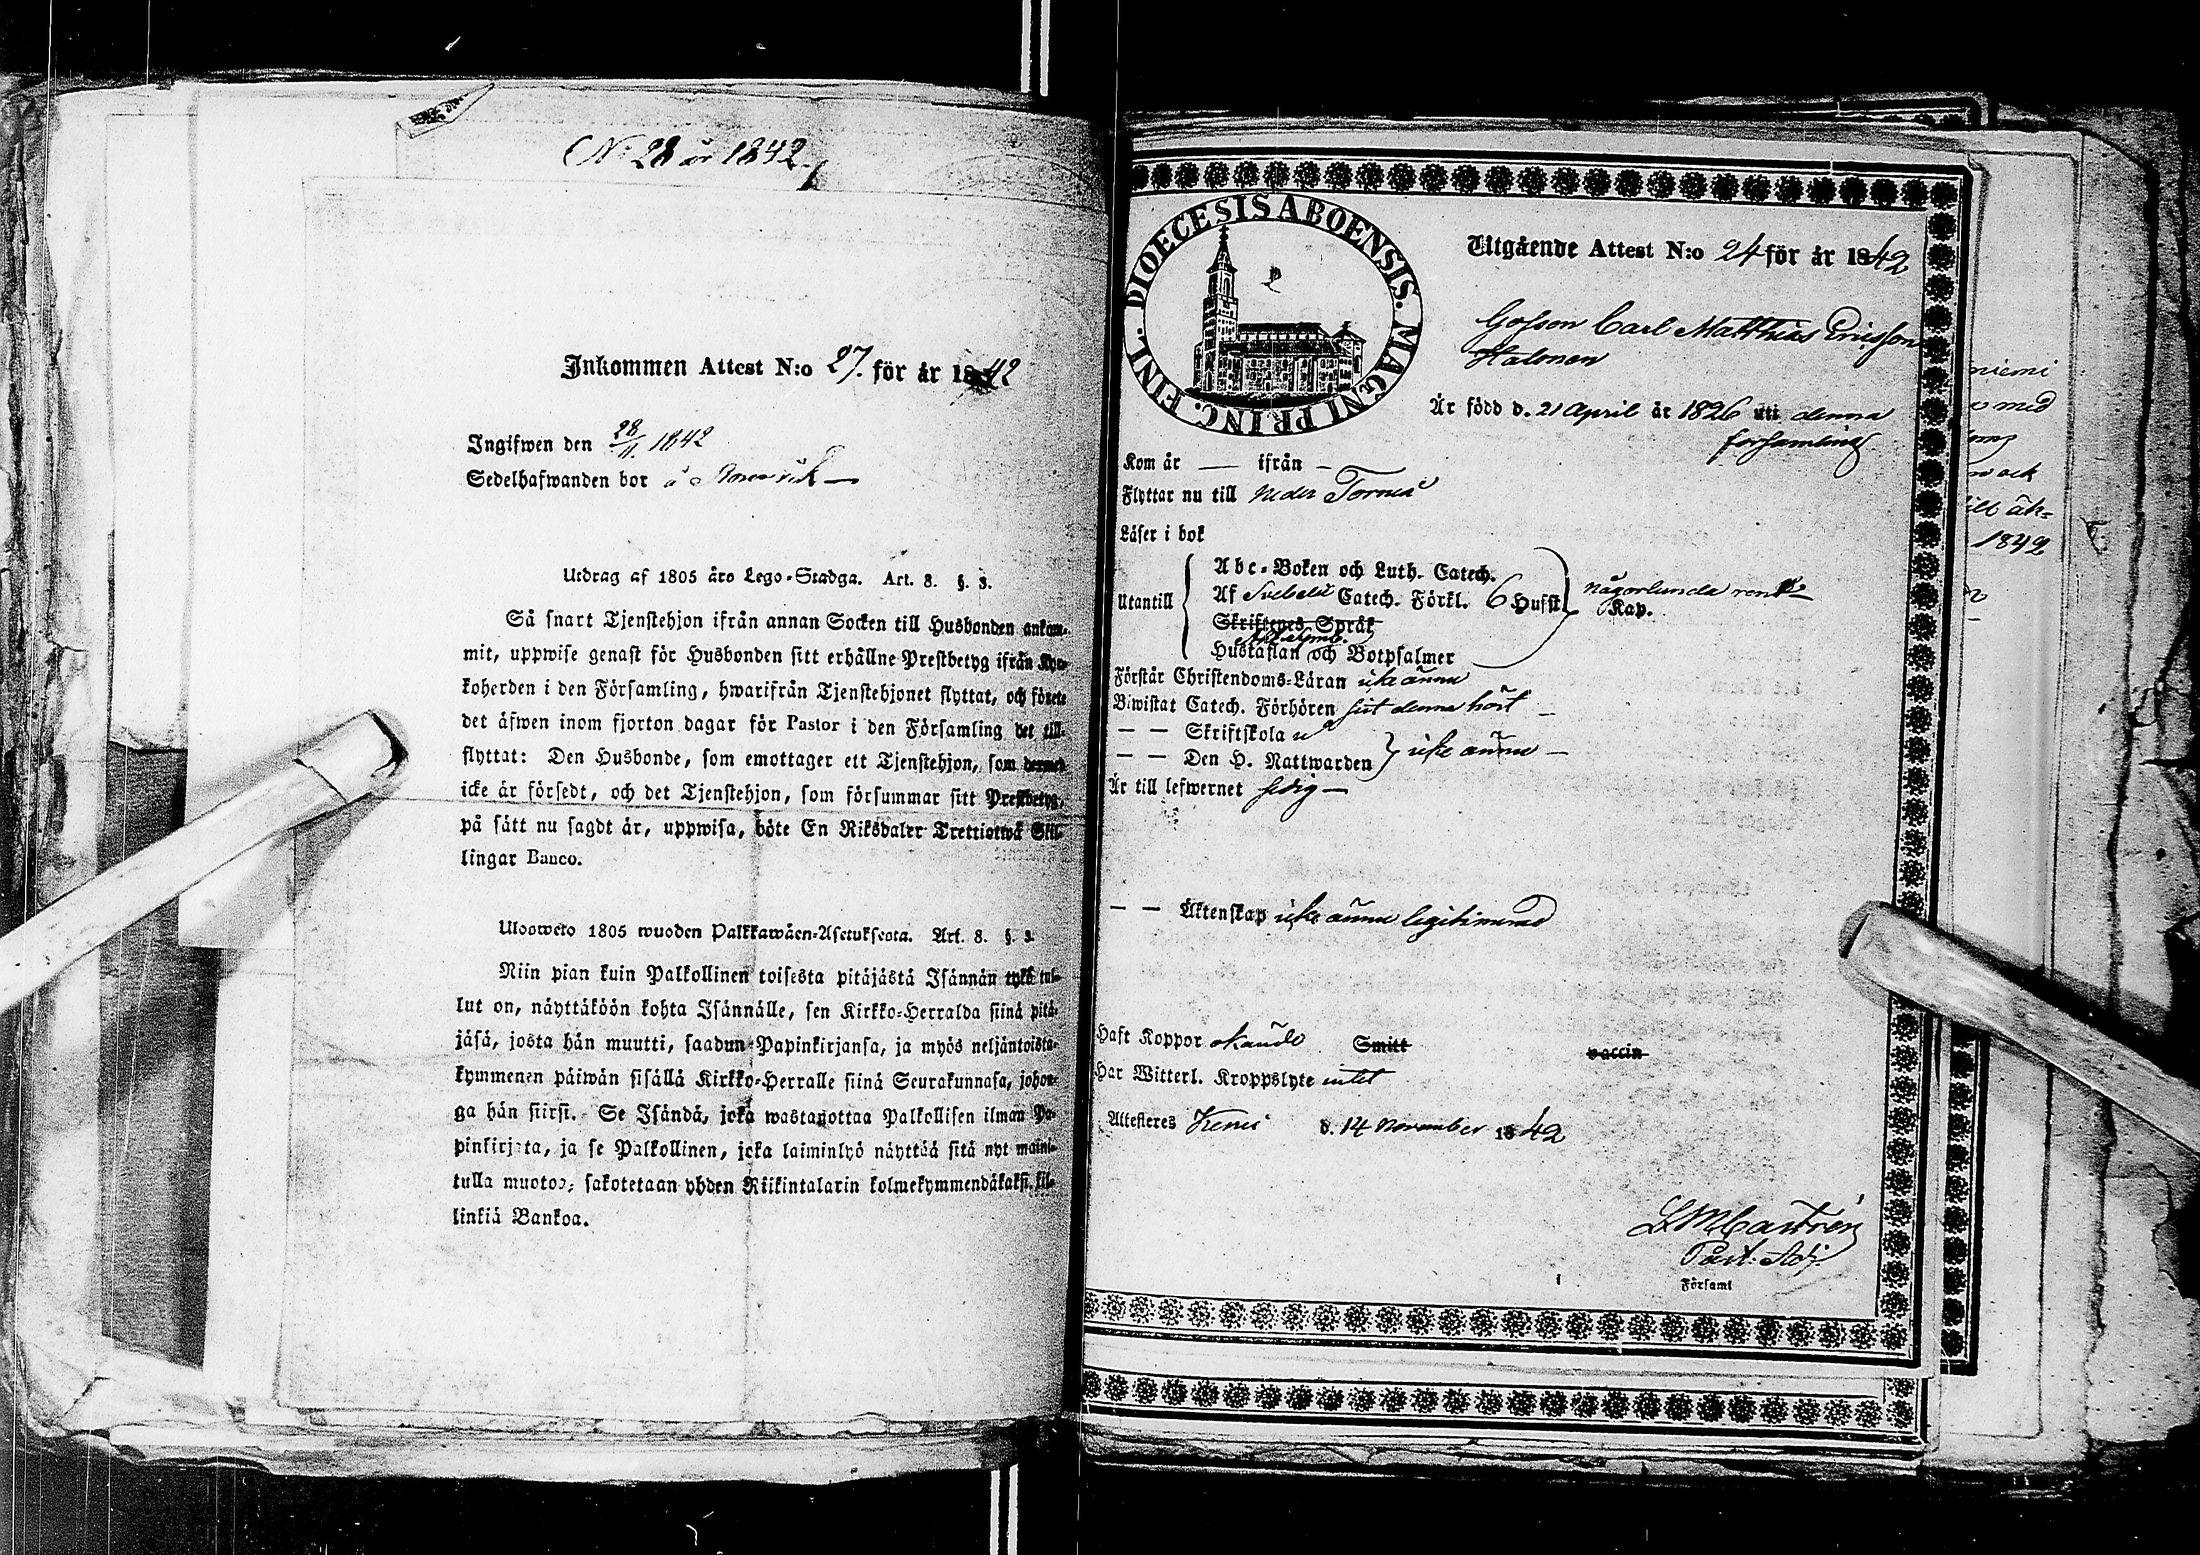 No 28 år 1842.
Inkommen Attest N:o 27. för år 1842
Ingifwen den 28/11 1842
Sedelhafwanden bor å
Utdrag af 1805 års Lego-Stadga. Art. 8. §. 3.
Så snart Tjenstehjon ifrån annan Socken till Husbonden ankom-
mit, uppwise genast för Husbonden sitt erhållne Prestbetyg ifrån Kyr-
koherden i den Församling, hwarifrån Tjenstehjonet flyttat, och förete
det äfwen inom fjorton dagar för Pastor i den Församling det till-
flyttat: Den Husbonde, som emottager ett Tjenstehjon, som dermed
icke är försedt, och det Tjenstehjon, som försummar sitt Prestbetyg,
på sätt nu sagdt är, uppwisa, böte En Riksdaler Trettiotwå Skil-
lingar Banco.
Ulosweto 1805 wuoden Palkkawäen-Asetuksesta. Art. 8. §. 3.
Niin pian kuin Palkollinen toisesta pitäjästä Isännän tykö tul-
lut on, näyttäköön kohta Isännälle, sen Kirkko-Herralda siinä pitä-
jäsä, josta hän muutti, saadun Papinkirjansa, ja myös neljäntoista-
kymmenen päiwän sisällä Kirkko-Herralle siinä Seurakunnasa, johon-
ga hän siirsi. Se Isändä, joka wastanottaa Palkollisen ilman Pa-
pinkirjata, ja se Palkollinen, joka laiminlyö näyttää sitä nyt maini-
tulla muotoa, sakotetaan yhden Riikintalarin kolmekymmendäkaksi kil-
linkiä Bankoa.
FINL. DIOECESIS ABOENSIS. MAGNI PRINC.
Utgående Attest N:o 24 för år 1842
Gosson Carl Matthias Ericsson
Halonen
Är född d. 21 April år 1826 uti denna
församling
Kom år — ifrån —
Flyttar nu till Neder Torneå
Läser i bok
Utantill
Abc-Boken och Luth. Catech.
Af Svebelii Catech. Förkl. 6 Hufst. någorlunda rent
Kap.
Skriftenes Språk
Hustaflan och Botpsalmer
Förstår Christendoms-Läran icke ännu
Biwistat Catech. Förhören sist denna höst —
— — Skriftskola
— — Den H. Nattwarden icke ännu —
Är till lefwernet sedig —
— — Äktenskap icke ännu legitimerad
Haft Koppor Smitt vaccin
Har Witterl. Kroppslyte intet
Attesteres Kemi d. 14 November 1842
L M Castrén
Past. Adj.
Församl
niemi
med
1842